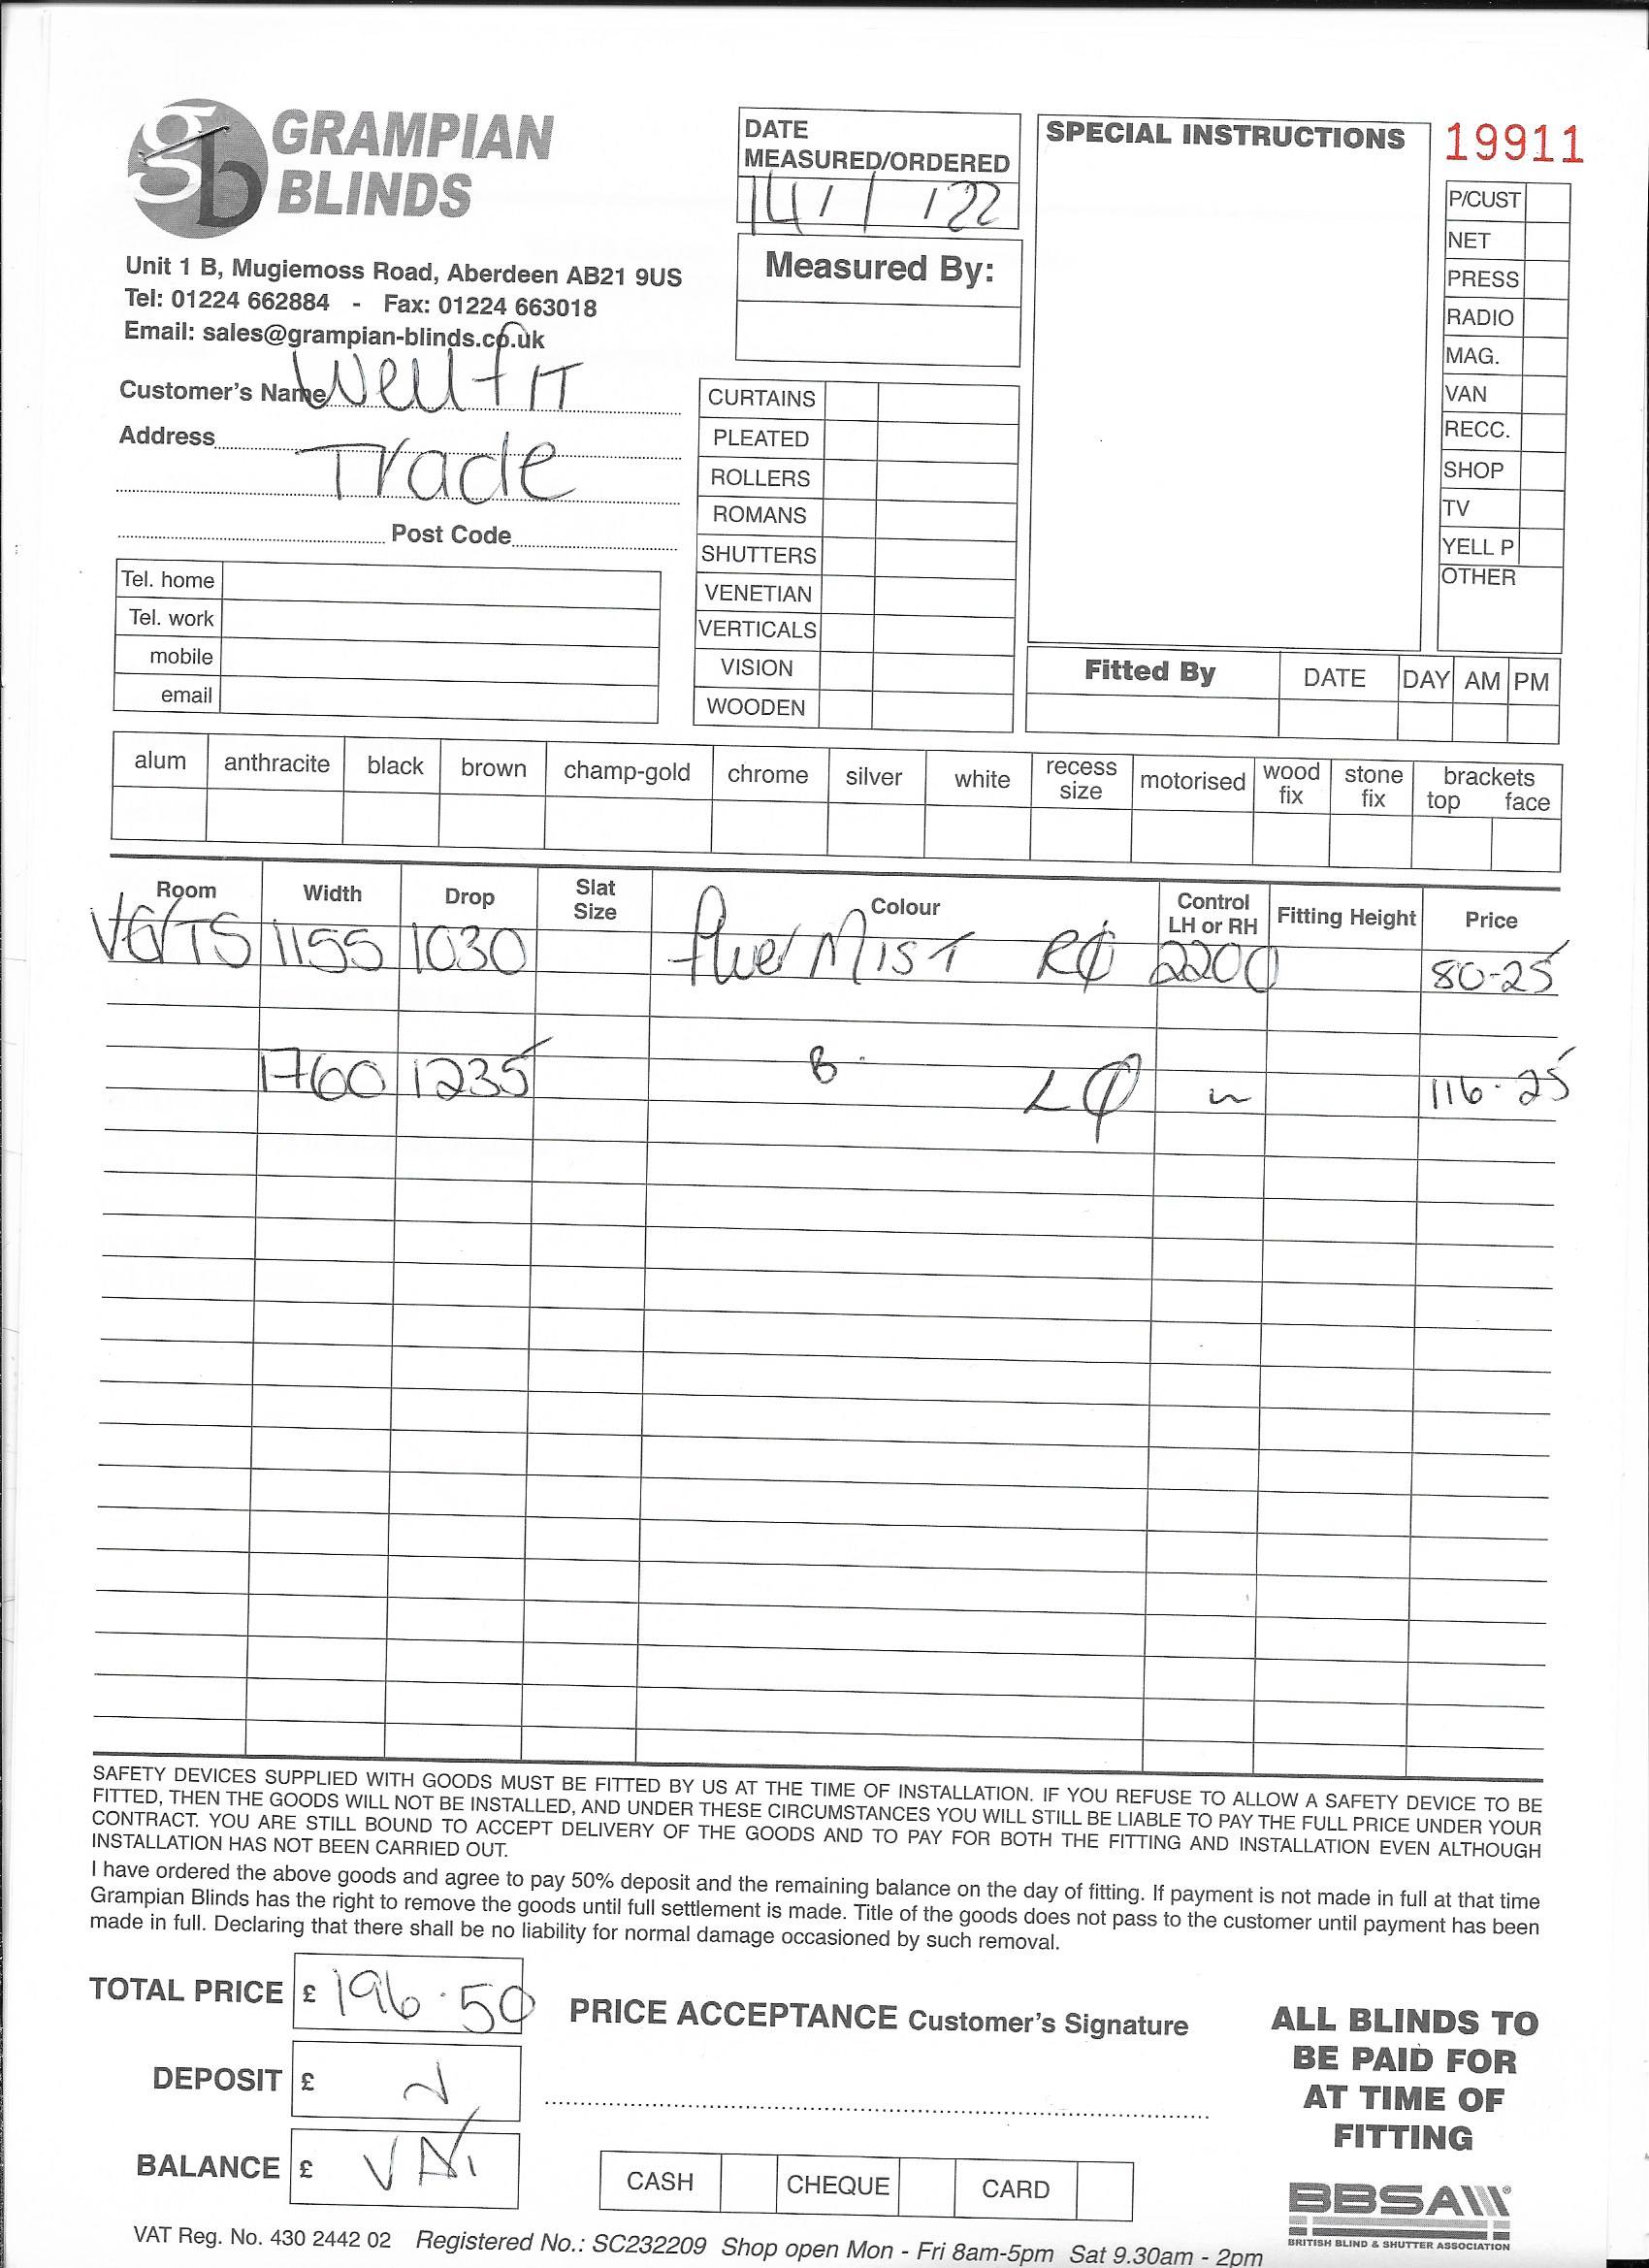 gb GRAMPIAN
BLINDS
Unit 1 B, Mugiemoss Road, Aberdeen AB21 9US
Tel: 01224 662884 - Fax: 01224 663018
Email: sales@grampian-blinds.co.uk
Customer's Name
Address Trade
Post Code
Tel. home
Tel. work
mobile
email
DATE
MEASURED/ORDERED
14/1/22
Measured By:
CURTAINS
PLEATED
ROLLERS
ROMANS
SHUTTERS
VENETIAN
VERTICALS
VISION
WOODEN
SPECIAL INSTRUCTIONS
19911
P/CUST
NET
PRESS
RADIO
MAG.
VAN
RECC.
SHOP
TV
YELL P
OTHER
Fitted By DATE DAY AM PM
alum anthracite black brown champ-gold chrome silver white recess size motorised wood fix stone fix brackets top face
Room Width Drop Slat Size Colour Control LH or RH Fitting Height Price
1155 1030 Mist 2200 80-25
1760 1235 116-25
SAFETY DEVICES SUPPLIED WITH GOODS MUST BE FITTED BY US AT THE TIME OF INSTALLATION. IF YOU REFUSE TO ALLOW A SAFETY DEVICE TO BE
FITTED, THEN THE GOODS WILL NOT BE INSTALLED, AND UNDER THESE CIRCUMSTANCES YOU WILL STILL BE LIABLE TO PAY THE FULL PRICE UNDER YOUR
CONTRACT. YOU ARE STILL BOUND TO ACCEPT DELIVERY OF THE GOODS AND TO PAY FOR BOTH THE FITTING AND INSTALLATION EVEN ALTHOUGH
INSTALLATION HAS NOT BEEN CARRIED OUT.
I have ordered the above goods and agree to pay 50% deposit and the remaining balance on the day of fitting. If payment is not made in full at that time
Grampian Blinds has the right to remove the goods until full settlement is made. Title of the goods does not pass to the customer until payment has been
made in full. Declaring that there shall be no liability for normal damage occasioned by such removal.
TOTAL PRICE £ 196.50
DEPOSIT £
BALANCE £
PRICE ACCEPTANCE Customer's Signature
CASH CHEQUE CARD
ALL BLINDS TO
BE PAID FOR
AT TIME OF
FITTING
BBSA
BRITISH BLIND & SHUTTER ASSOCIATION
VAT Reg. No. 430 2442 02 Registered No.: SC232209 Shop open Mon - Fri 8am-5pm Sat 9.30am - 2pm